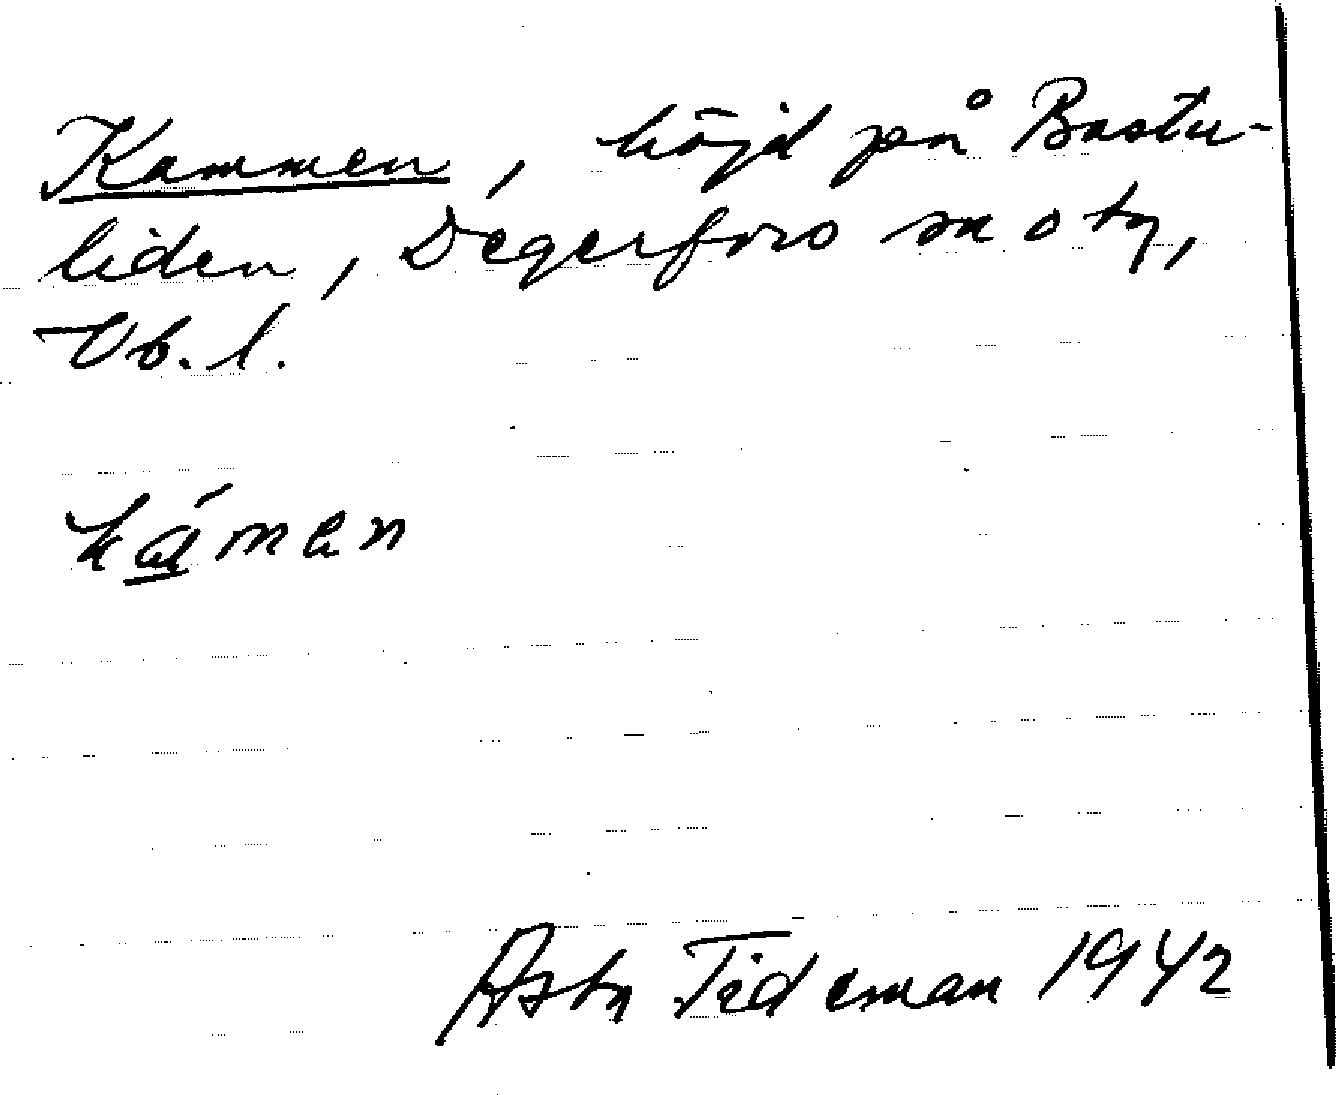 Kammen, höjd på Bastu-
liden, Degerfors sn o tg,
Vb. l.
kámen
Asta Tideman 1942